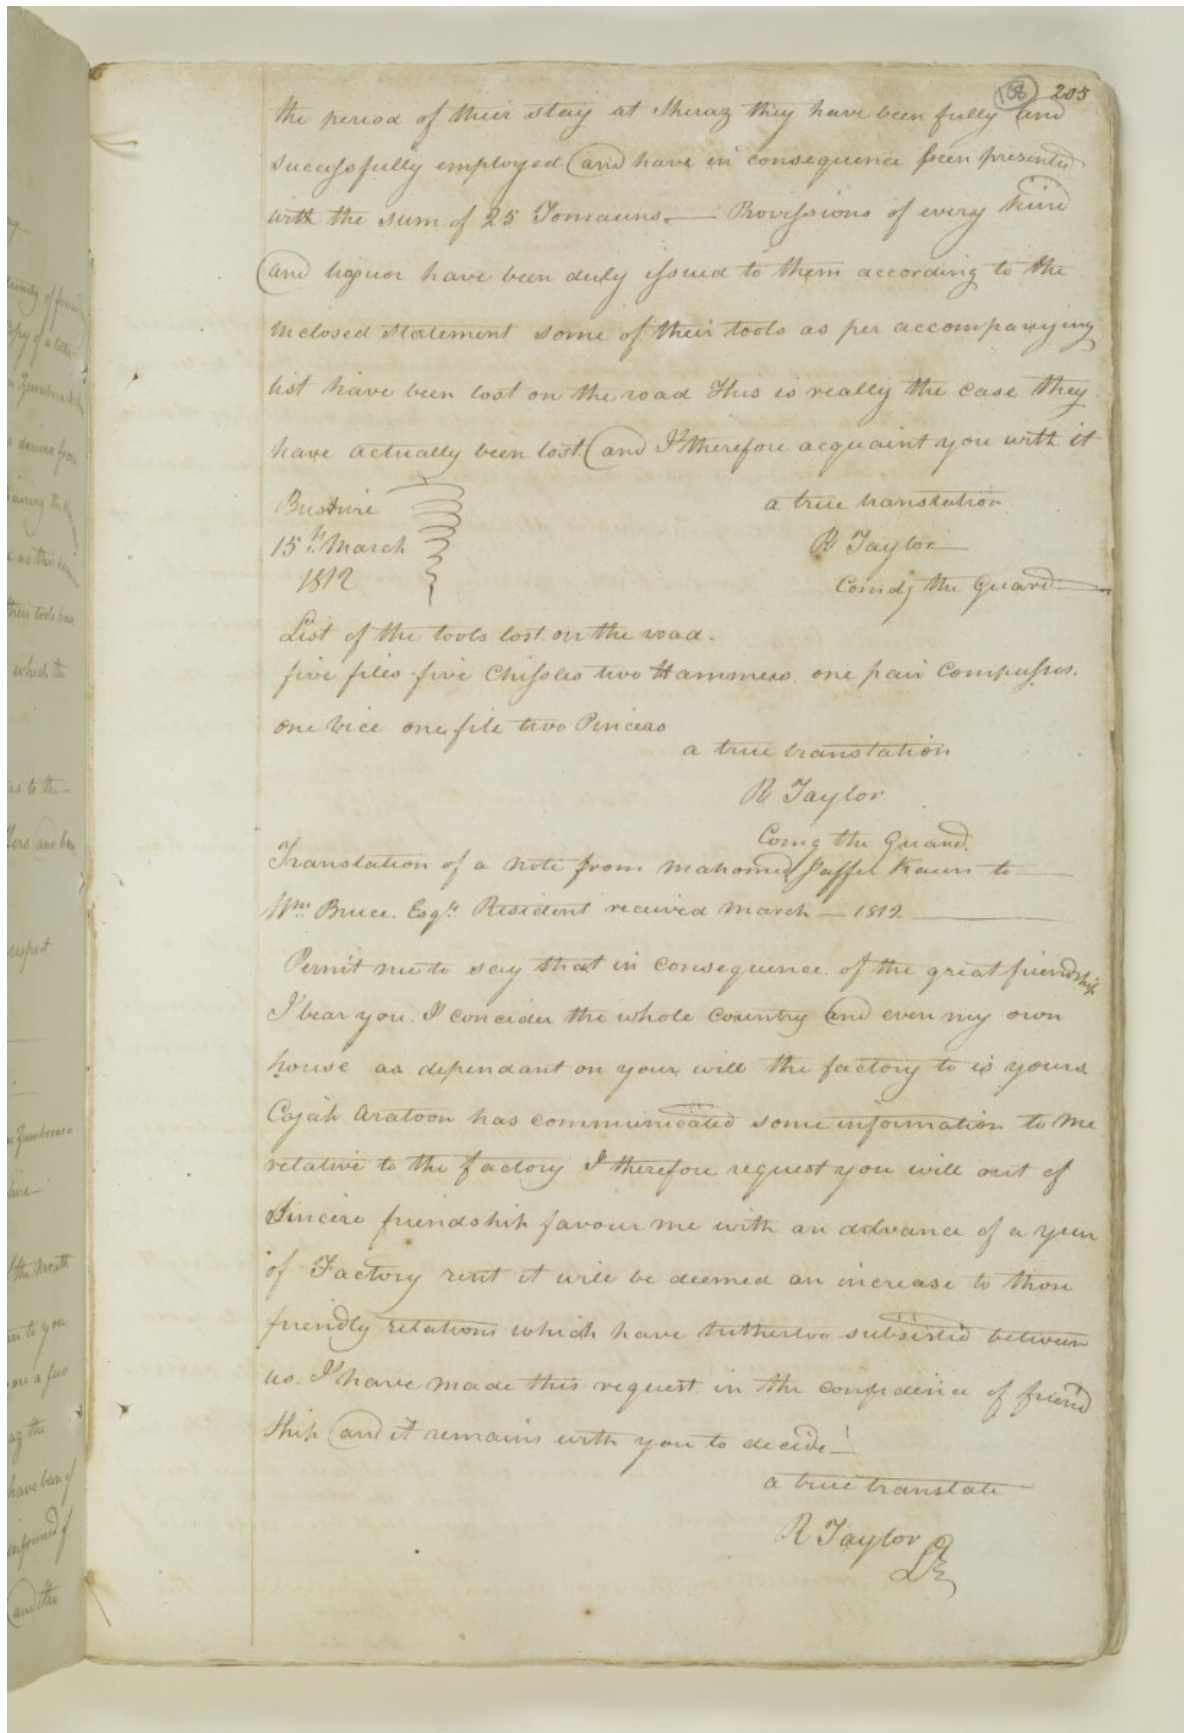 108 205
the period of their stay at Sheraz they have been fully and
successfully employed and have in consequence been presented
with the sum of 25 Tomauns. — Provissions of every kind
and liquor have been duly issued to them according to the
inclosed statement some of their tools as per accompanying
list have been lost on the road This is really the case they
have actually been lost and I therefore acquaint you with it
Bushire a true translation
15th March R Taylor
1812 Comdg the Guard
List of the tools lost on the road.
five files five Chissles two Hammers one pair Compasses.
one vice one file two Pincers
a true translation
R Taylor
Comg the Guard.
Translation of a note from Mahomed Jaffer Kaun to
Wm Bruce. Esqr. Resident received March — 1812
Permit me to say that in consequence of the great friendship
I bear you. I concider the whole Country and even my own
house as dependant on your will the factory to is yours
Cojah Aratoon has communicated some information to me
relative to the factory I therefore request you will out of
Sincere friendship favour me with an advance of a year
of Factory rent it will be deemed an increase to those
friendly relations which have hithertoo subsisted between
us. I have made this request in the confidence of friend
ship and it remains with you to decide!
a true translate
R Taylor